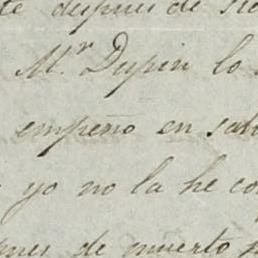 después de
Mr. Dupin lo
empeño en
yo no la he
de muerto